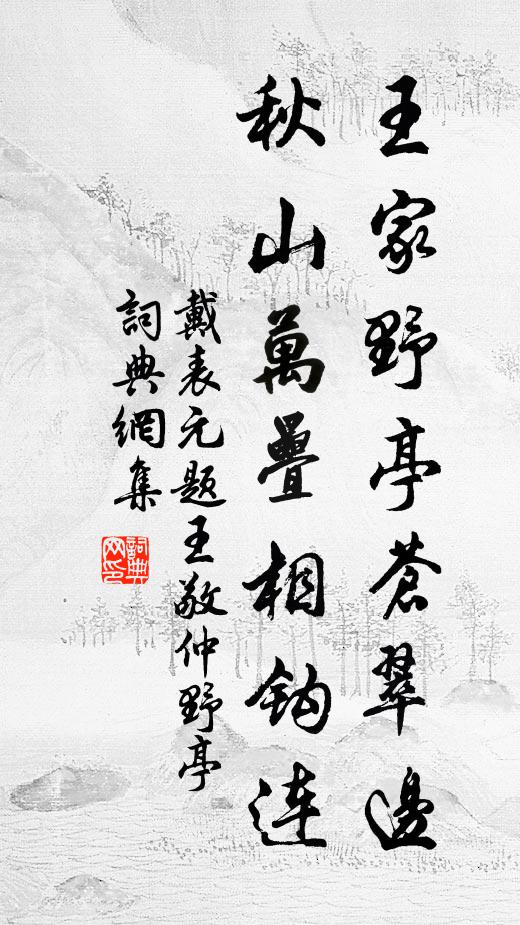 王家野亭蒼翠邊
秋山萬疊相鈎連
戴表元题王敬仲野亭
詞典網集
詞典网印